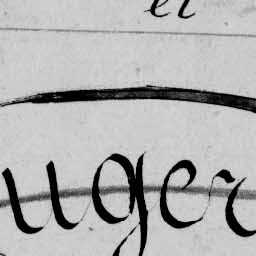 et
uger